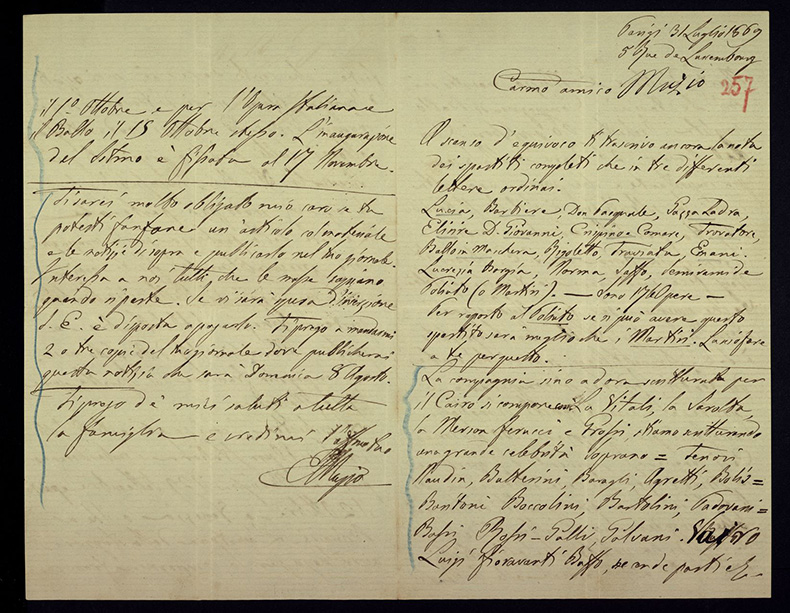 Parigi 31 Luglio 1869
5 Rue de Luxembourg
Carmo amico Muzio
257
A scenso d'equivoco ti trascrivo ancora la nota
dei spartiti completi che in tre differenti
lettere ordinai:
Lucia, Barbiere, Don Pasquale, Gazza Ladra,
Elisire D. Giovanni, Crispino e Comare, Trovatore,
Ballo in Maschera, Rigoletto, Traviata, Ernani.
Lucrezia Borgia, Norma, Saffo, Semiramide
Poliuto (o Martiri) — sono 17 le Opere —
Per raporto al Poliuto se si può avere questo
spartito sarà meglio che i Martiri. Lascio fare
a te per questo.
La compagnia sino adora scritturata per
il Cairo si compone La Vitali, la Sarolta,
la Grossi stiamo scritturando
una grande celebrità Soprano = Tenori
Naudin, Baragli, =
Bantoni Boccolini, Bartolini, Padovani =
Bassi Rossi-Galli,
Luigi Fioravanti Buffo, seconde parti e
il 1.° Ottobre e per l'Opera Italiana e
il Ballo il 15 Ottobre stesso. L'inaugurazione
del Istmo è fissata al 17 Novembre.
Ti sarei molto obligato mio caro se tu
potesti far fare un articolo
e le notizie di sopra e publicarlo nel giornale.
Interessa a noi tutti che le masse sappiano
quando si parte. Se vi sarà spesa d'inserzione
S. E. è disposta a pagarla. Ti prego a mandarmi
2 o tre copie del giornale dove publicherai
questa notizia che sarà Domenica 8 Agosto.
Ti prego dé miei saluti a tutta
la famiglia e credimi